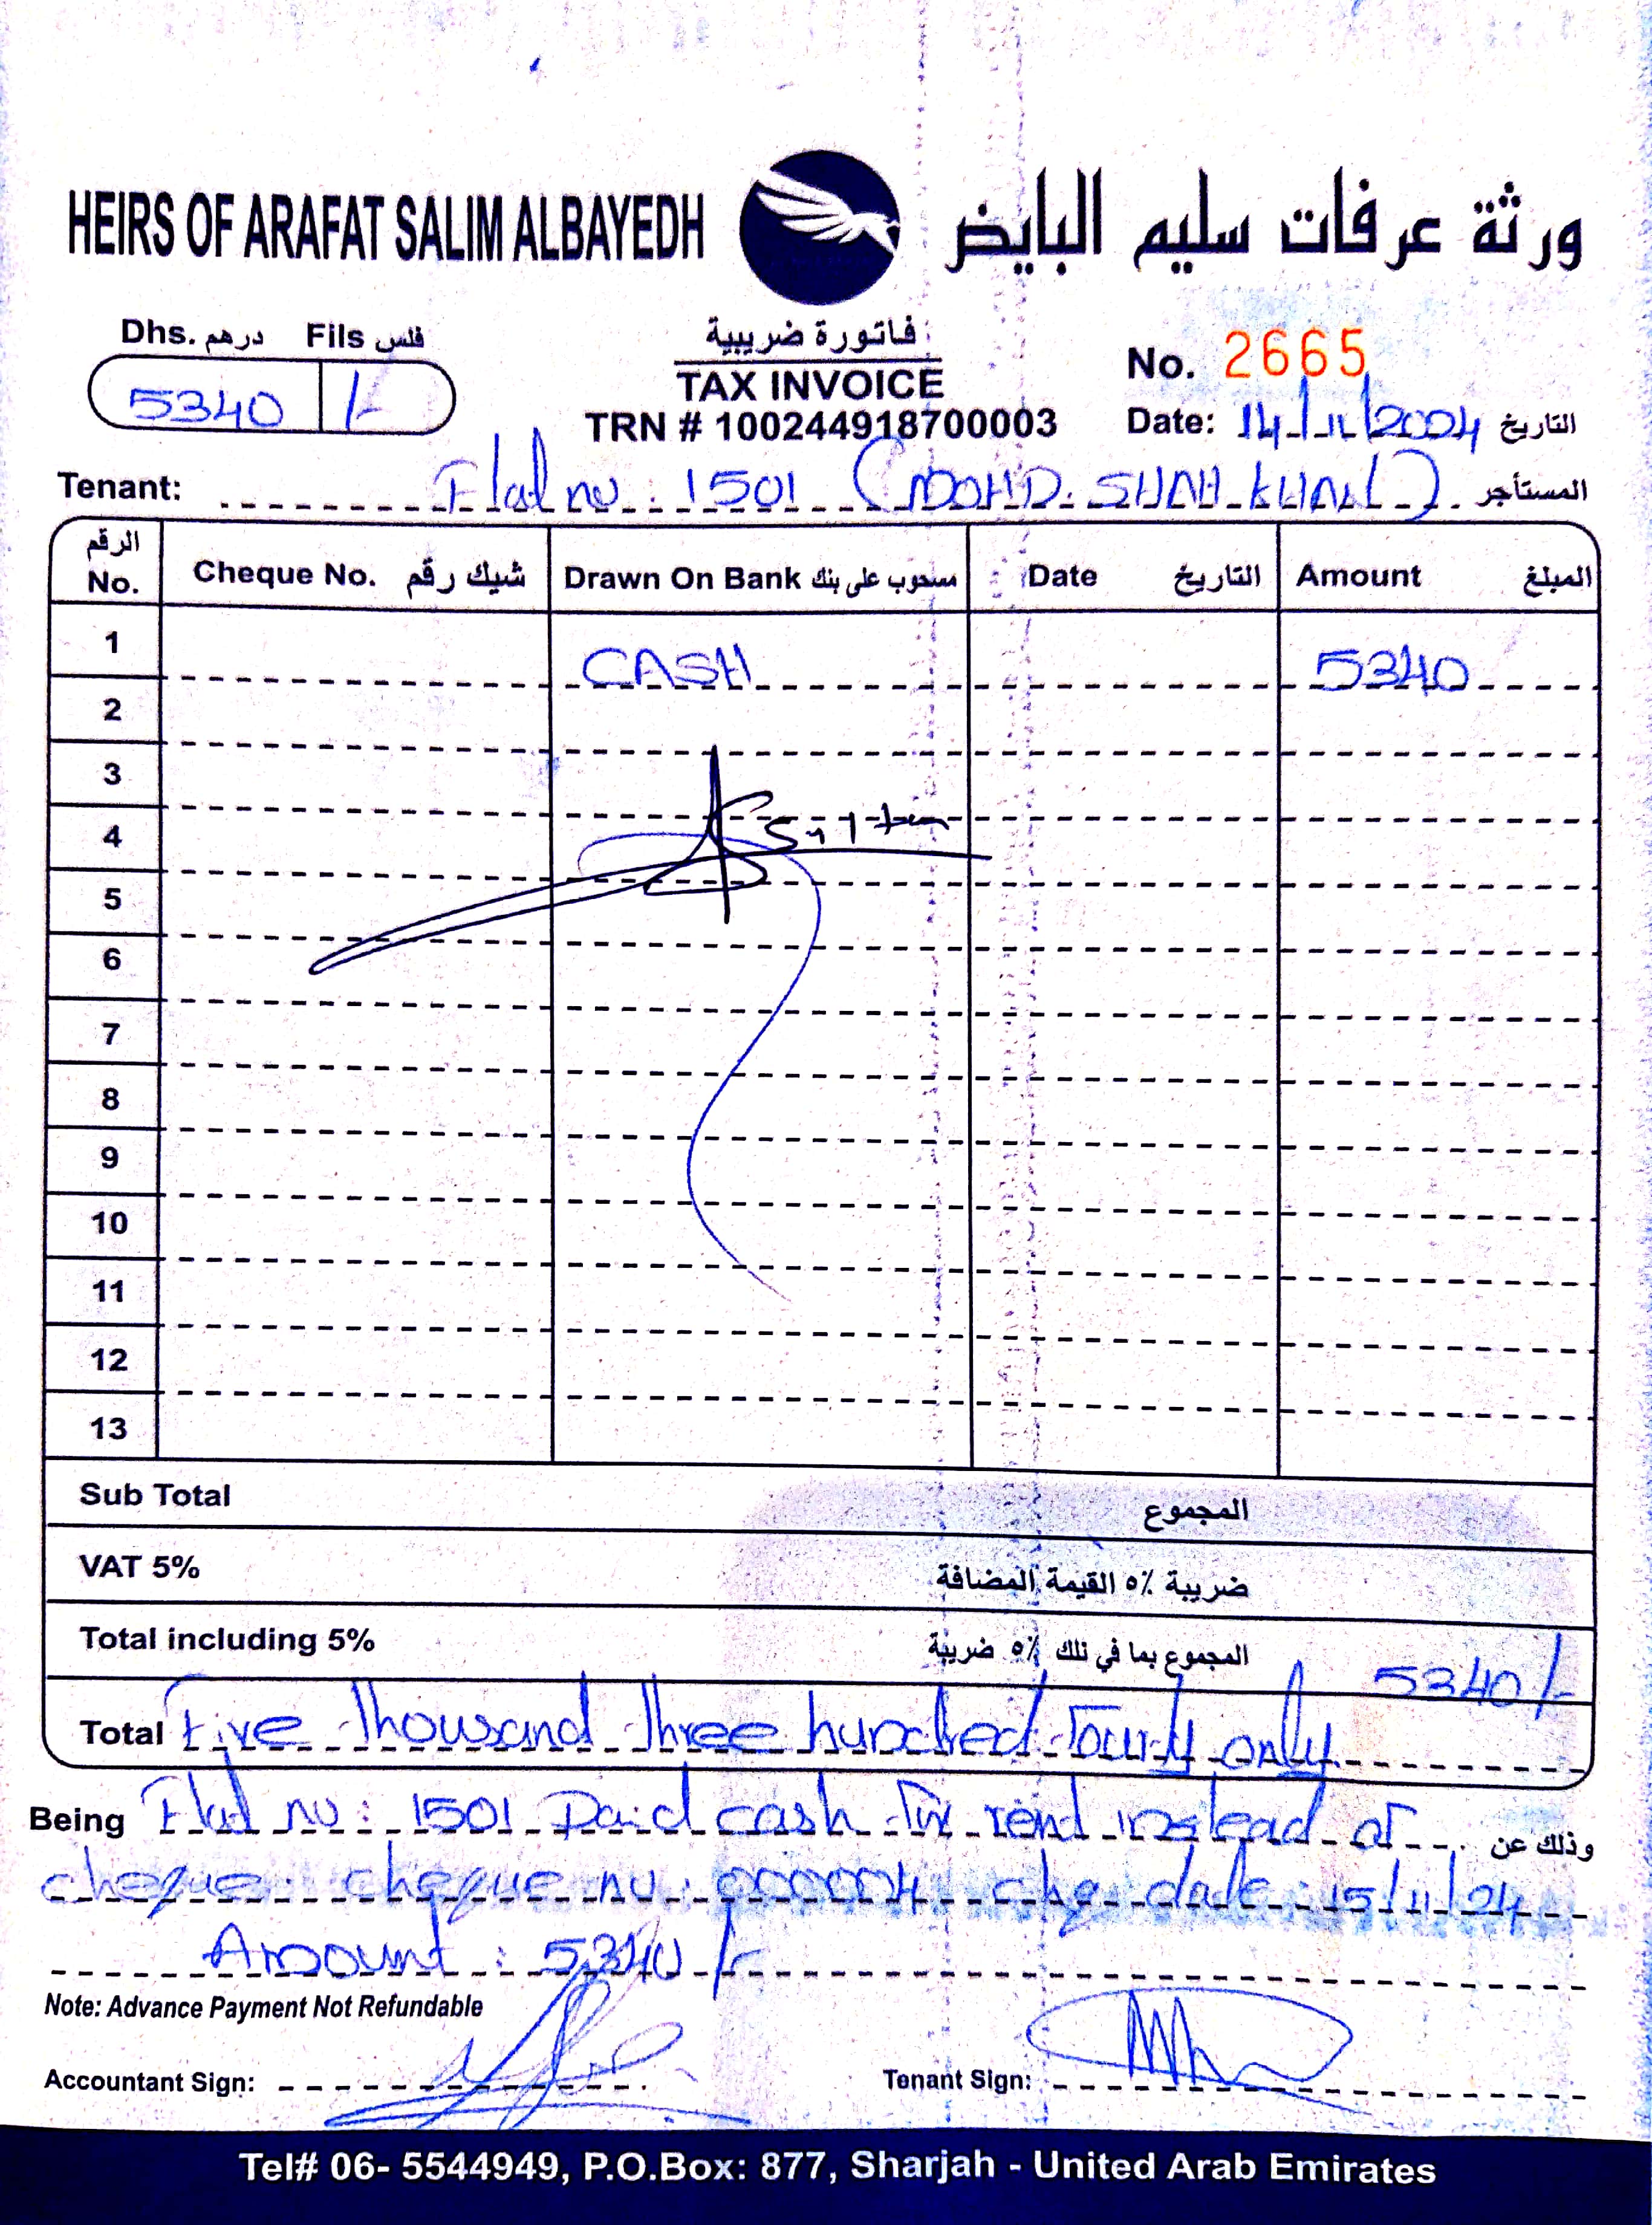 HEIRS OF ARAFAT SALIM ALBAYEDH ورثة عرفات سليم البايض
Dhs. درهم Fils فلس
5340 /-
فاتورة ضريبية
TAX INVOICE
TRN # 100244918700003
No. 2665
Date: 14/11/2024 التاريخ
Tenant: Flat no: 1501 (MOHD. SHAH KHAN) المستأجر
الرقم No. Cheque No. شيك رقم Drawn On Bank مسحوب على بنك Date التاريخ Amount المبلغ
1 CASH 5340
2
3
4 Sultan
5
6
7
8
9
10
11
12
13
Sub Total المجموع
VAT 5% ضريبة ٥٪ القيمة المضافة
Total including 5% المجموع بما في تلك ٥٪ ضريبة 5340/-
Total Five Thousand Three hundred Fourty only
Being Flat no: 1501 Paid cash for rend instead of وذلك عن
cheque. cheque no: 000004 chq date: 15/11/24
Amount : 5340/-
Note: Advance Payment Not Refundable
Accountant Sign:
Tenant Sign:
Tel# 06- 5544949, P.O.Box: 877, Sharjah - United Arab Emirates